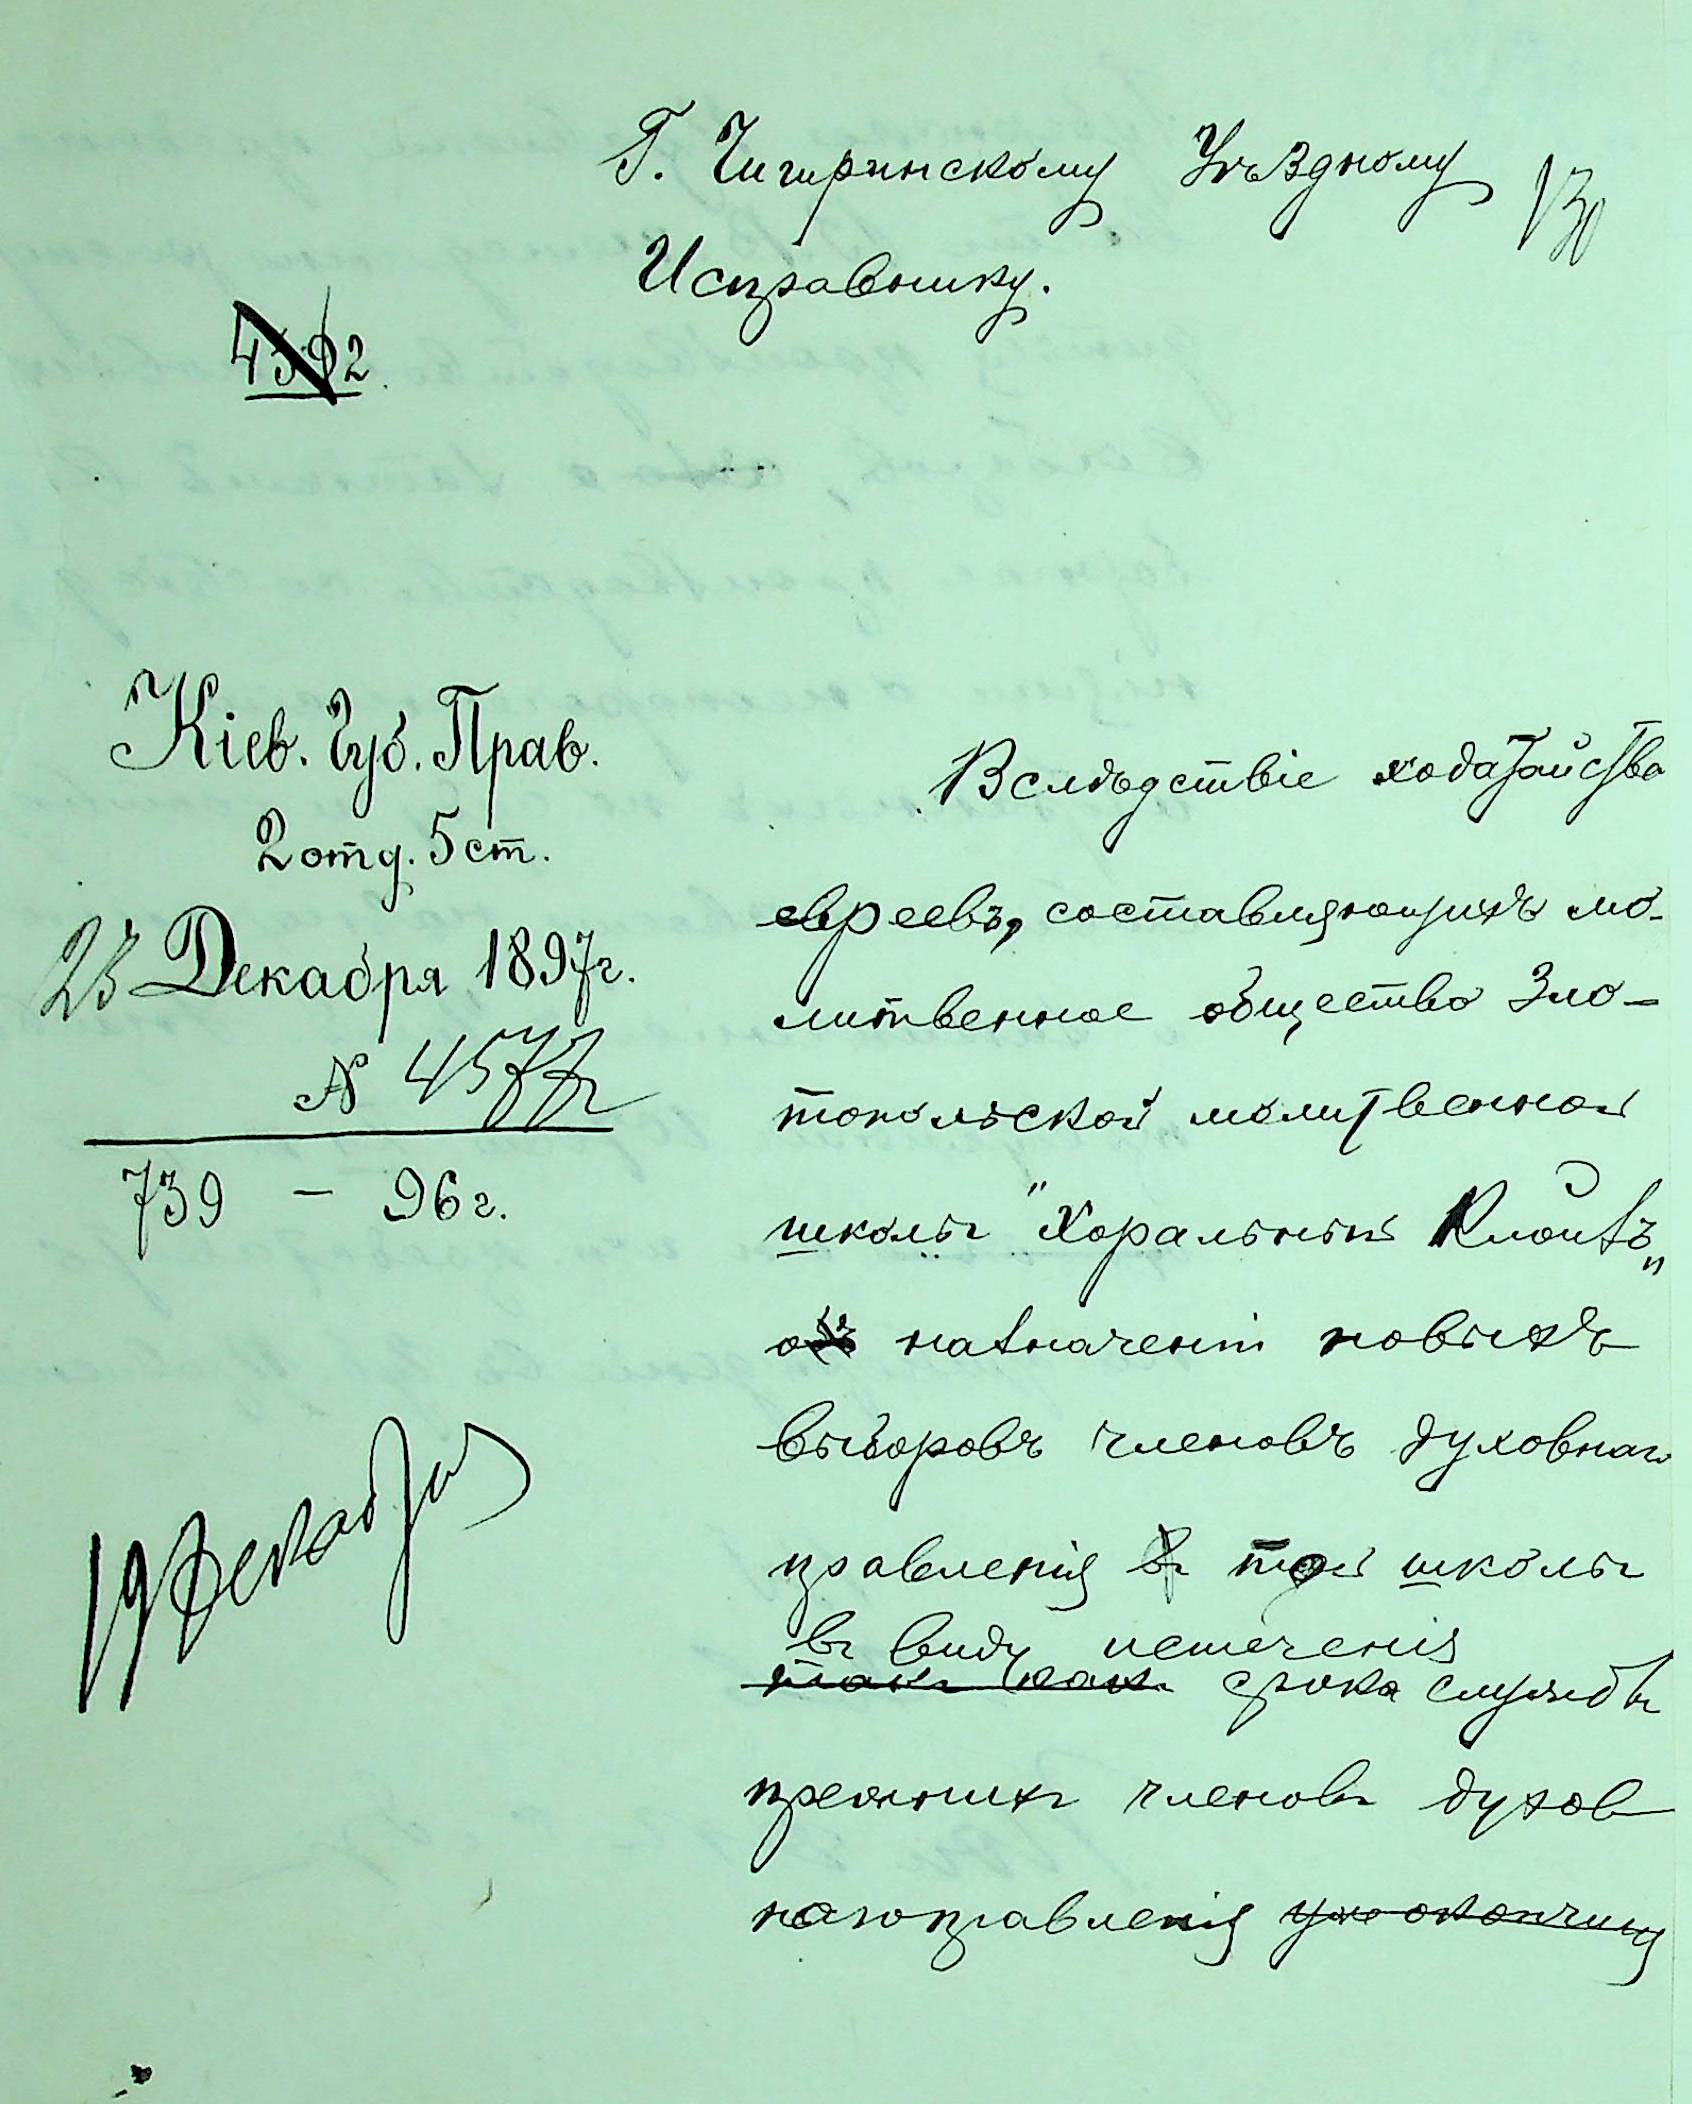 Г. Чигиринскому Уѣздному
130
Исправнику.
4592
Кіев. Губ. Прав.
2 отд. 5 ст.
23 Декабря 1897 г.
№ 4577
739 – 96 г.
19 Декабря
Вслѣдствіе ходатайства
евреевъ, составляющихъ мо-
литвенное общество Зло-
топольской молитвенной
школы "Хоральный Клойзъ"
о назначеніи новыхъ
выборовъ членовъ духовнаго
правленія той школы
въ виду истеченія
такъ какъ срока службы
прежнихъ членовъ духов
наго правленія уже окончился